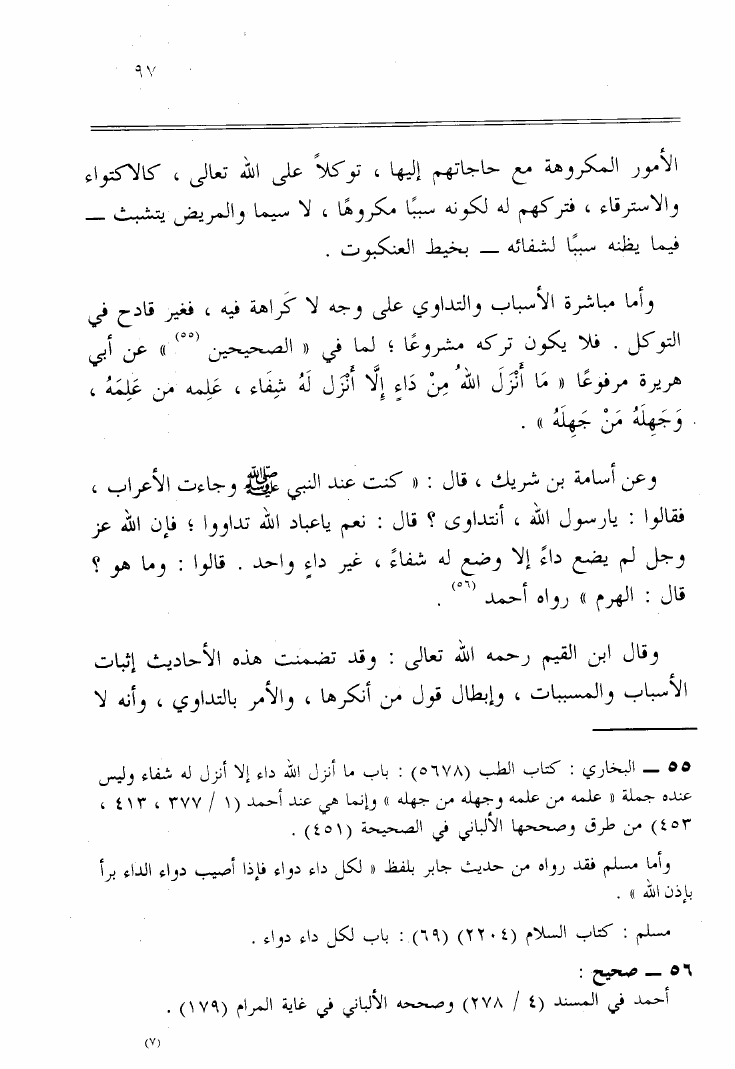 ٩٧
الأمور المكروهة مع حاجاتهم إليها ، توكلاً على الله تعالى ، كالاكتواء
والاسترقاء ، فتركهم له لكونه سببًا مكروهًا ، لا سيما والمريض يتشبث ــ
فيما يظنه سببًا لشفائه ــ بخيط العنكبوت .
وأما مباشرة الأسباب والتداوي على وجه لا كَراهة فيه ، فغير قادح في
التوكل . فلا يكون تركه مشروعًا ؛ لما في « الصحيحين (٥٥) » عن أبي
هريرة مرفوعًا « مَا أَنْزَلَ اللهُ مِنْ دَاءٍ إِلَّا أَنْزَل لَهُ شِفَاء ، عَلِمه من عَلِمَهُ ،
وَجَهِلَهُ مَنْ جَهِلَهُ » .
وعن أسامة بن شريك ، قال : « كنت عند النبي ﷺ وجاءت الأعراب ،
فقالوا : يارسول الله ، أنتداوى ؟ قال : نعم ياعباد الله تداووا ؛ فإن الله عز
وجل لم يضع داءً إلا وضع له شفاءً ، غير داءٍ واحد . قالوا : وما هو ؟
قال : الهرم » رواه أحمد (٥٦) .
وقال ابن القيم رحمه الله تعالى : وقد تضمنت هذه الأحاديث إثبات
الأسباب والمسببات ، وإبطال قول من أنكرها ، والأمر بالتداوي ، وأنه لا
٥٥ ــ البخاري : كتاب الطب (٥٦٧٨) : باب ما أنزل الله داء إلا أنزل له شفاء وليس
عنده جملة « علمه من علمه وجهله من جهله » وإنما هي عند أحمد (١ / ٣٧٧ ، ٤١٣ ،
٤٥٣) من طرق وصححها الألباني في الصحيحة (٤٥١) .
وأما مسلم فقد رواه من حديث جابر بلفظ « لكل داء دواء فإذا أصيب دواء الداء برأ
بإذن الله » .
مسلم : كتاب السلام (٢٢٠٤) (٦٩) : باب لكل داء دواء .
٥٦ ــ صحيح :
أحمد في المسند (٤ / ٢٧٨) وصححه الألباني في غاية المرام (١٧٩) .
(٧)